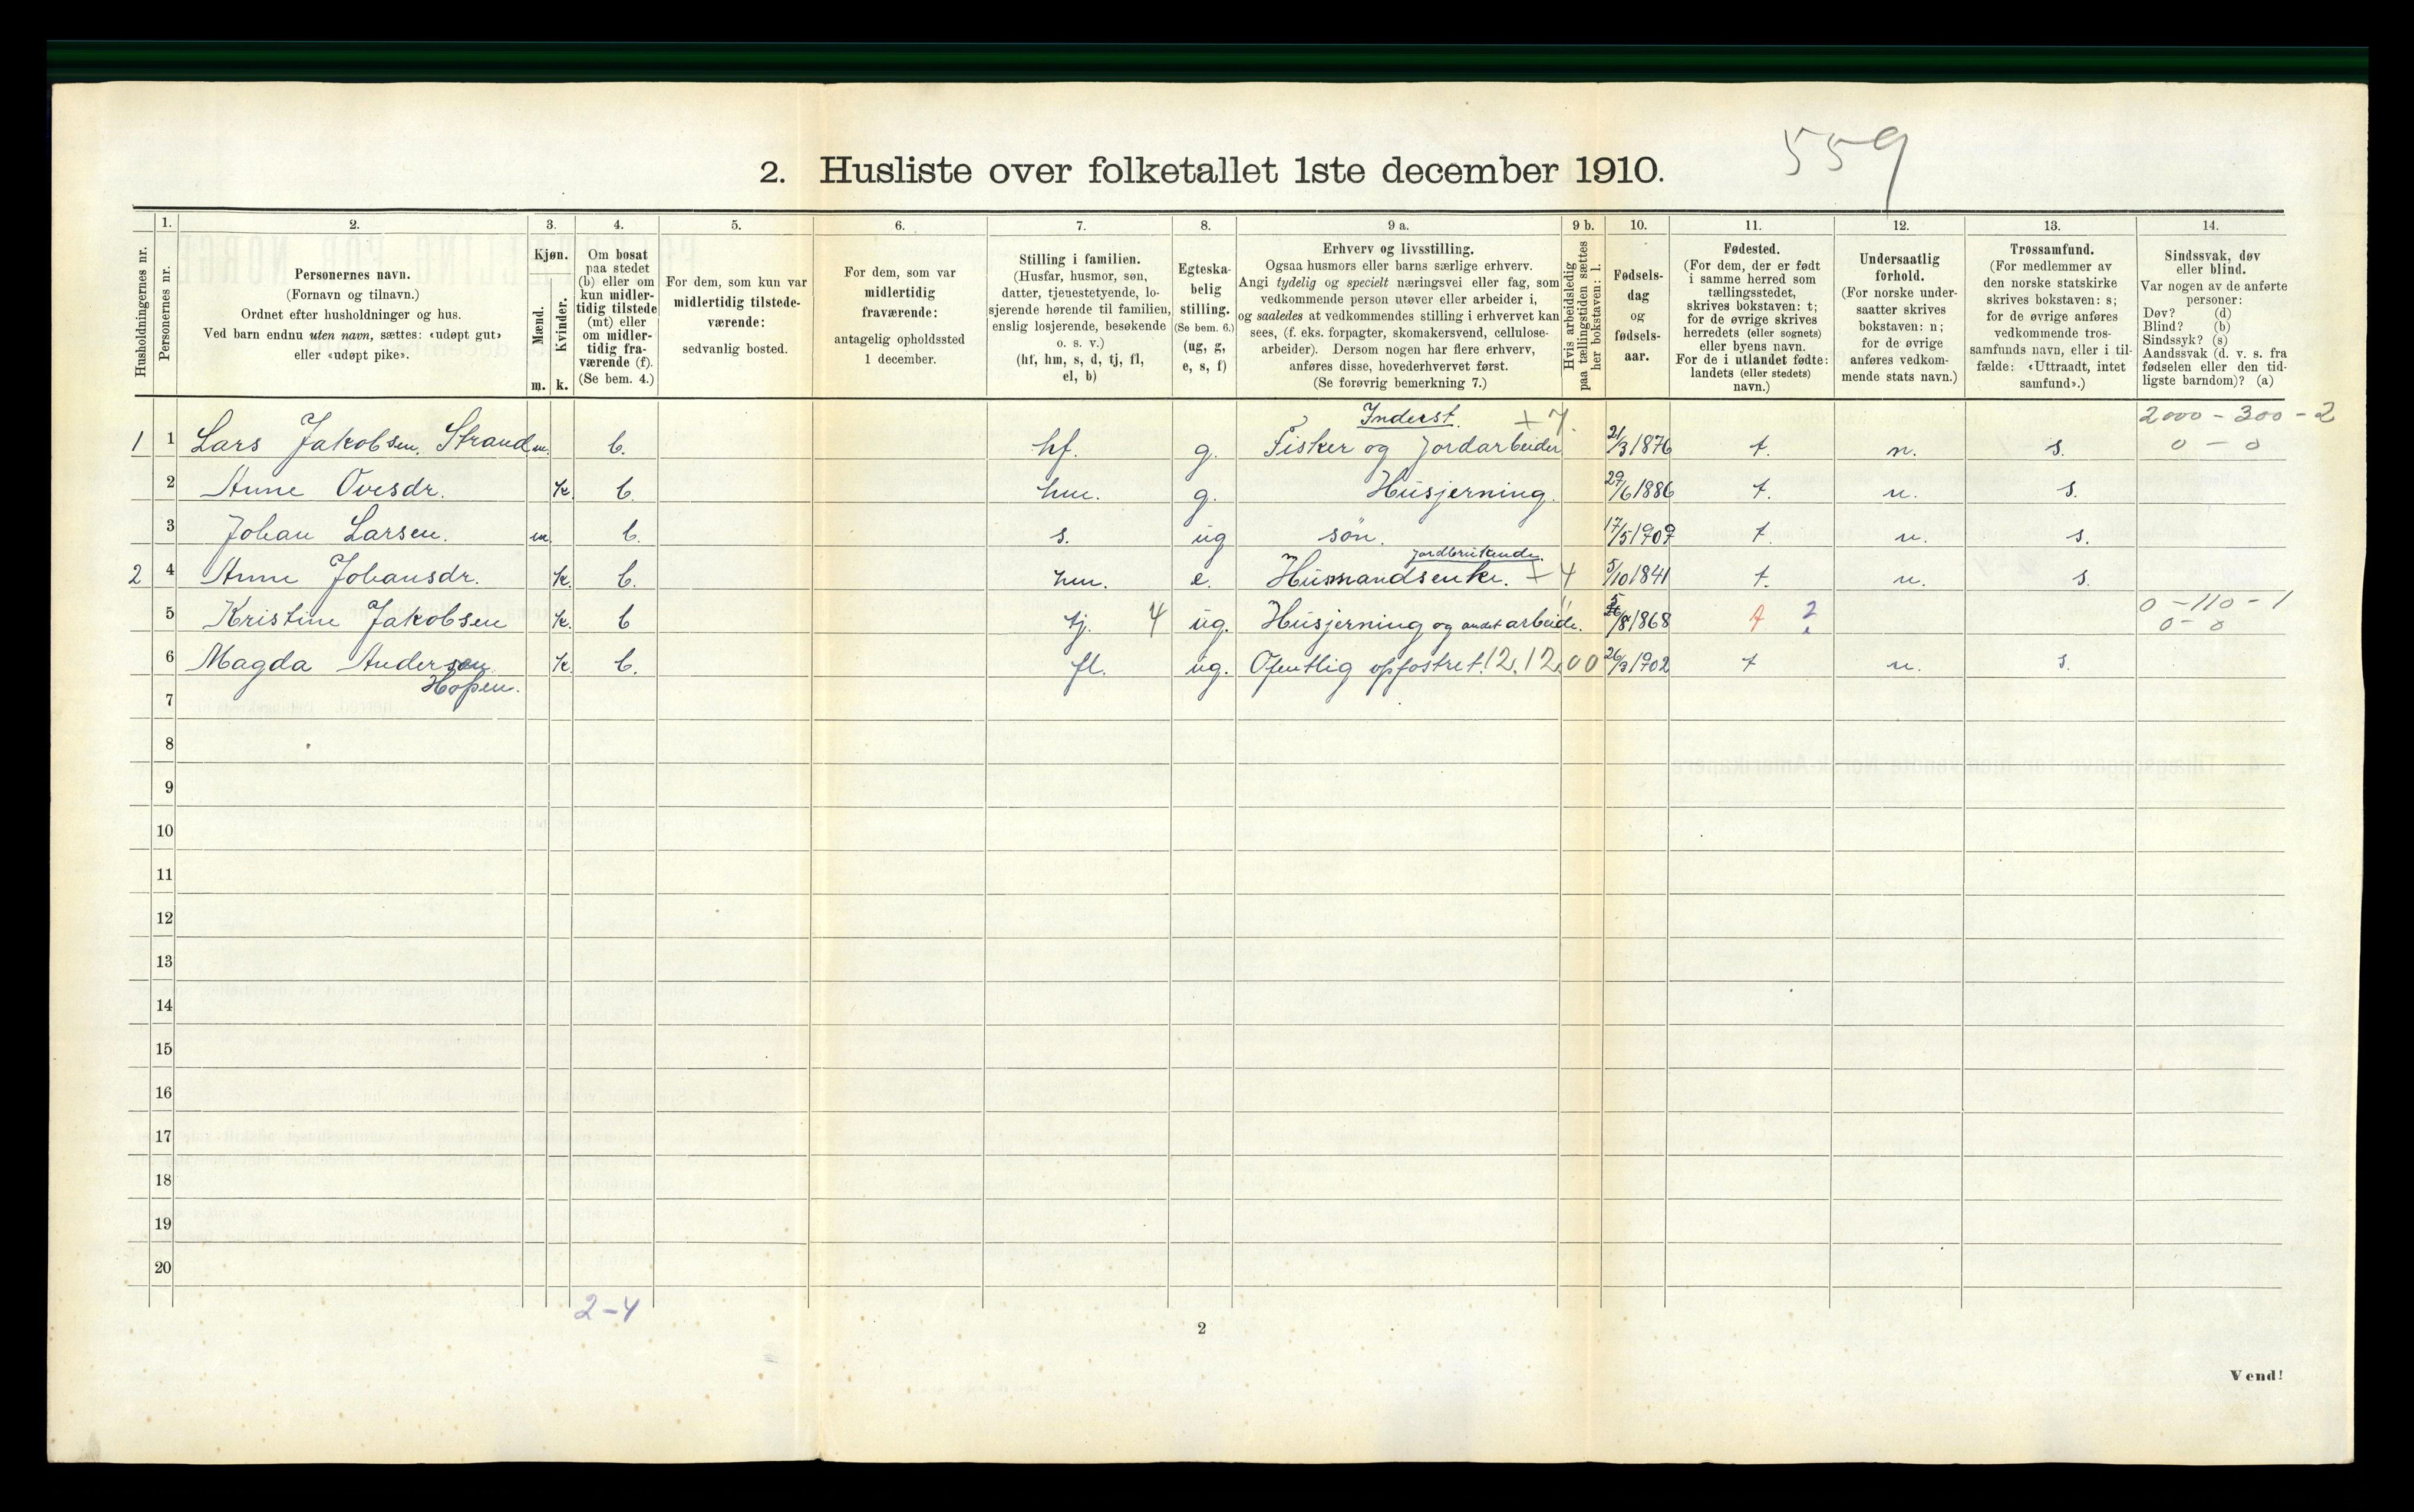 559
2. Husliste over folketallet 1ste december 1910.
Husholdningernes nr.
1.
Personernes nr.
2.
Personernes navn.
(Fornavn og tilnavn.)
Ordnet efter husholdninger og hus.
Ved barn endnu uten navn, sættes: «udøpt gut»
eller «udøpt pike».
3.
Kjøn.
Mænd.
Kvinder.
m. k.
4.
Om bosat
paa stedet
(b) eller om
kun midler-
tidig tilstede
(mt) eller
om midler-
tidig fra-
værende (f).
(Se bem. 4.)
5.
For dem, som kun var
midlertidig tilstede-
værende:
sedvanlig bosted.
6.
For dem, som var
midlertidig
fraværende:
antagelig opholdssted
1 december.
7.
Stilling i familien.
(Husfar, husmor, søn,
datter, tjenestetyende, lo-
sjerende hørende til familien,
enslig losjerende, besøkende
o. s. v.)
(hf, hm, s, d, tj, fl,
el, b)
8.
Egteska-
belig
stilling.
(Se bem. 6.)
(ug, g,
e, s, f)
9 a.
Erhverv og livsstilling.
Ogsaa husmors eller barns særlige erhverv.
Angi tydelig og specielt næringsvei eller fag, som
vedkommende person utøver eller arbeider i,
og saaledes at vedkommendes stilling i erhvervet kan
sees, (f. eks. forpagter, skomakersvend, cellulose-
arbeider). Dersom nogen har flere erhverv,
anføres disse, hovederhvervet først.
(Se forøvrig bemerkning 7.)
9 b.
Hvis arbeidsledig
paa tællingstiden sættes
her bokstaven: l.
10.
Fødsels-
dag
og
fødsels-
aar.
11.
Fødested.
(For dem, der er født
i samme herred som
tællingsstedet,
skrives bokstaven: t;
for de øvrige skrives
herredets (eller sognets)
eller byens navn.
For de i utlandet fødte:
landets (eller stedets)
navn.)
12.
Undersaatlig
forhold.
(For norske under-
saatter skrives
bokstaven: n;
for de øvrige
anføres vedkom-
mende stats navn.)
13.
Trossamfund.
(For medlemmer av
den norske statskirke
skrives bokstaven: s;
for de øvrige anføres
vedkommende tros-
samfunds navn, eller i til-
fælde: «Uttraadt, intet
samfund».)
14.
Sindssvak, døv
eller blind.
Var nogen av de anførte
personer:
Døv? (d)
Blind? (b)
Sindssyk? (s)
Aandssvak (d. v. s. fra
fødselen eller den tid-
ligste barndom)? (a)
Inderst. + 7. 2000 - 300 - 2
1 1 Lars Jakobsen Strand m. b. hf. g. Fisker og Jordarbeider 21/3 1876 t. n. s. 0 - 0
2 Anne Ovesdr. k. b. hm. g. Husjerning. 29/6 1886 t. n. s.
3 Johan Larsen. m. b. s. ug søn. 17/5 1907 t. n. s.
jordbrukende.
2 4 Anne Johansdr. k. b. hm. e. Husmandsenke. + 4 5/10 1841 t. n. s.
0 - 110 - 1
5 Kristine Jakobsen k. b tj. 4 ug. Husjerning og andet arbeide. 5/8 1868 t ? 0 - 0
6 Magda Andersen k. b. fl. ug. Ofentlig opfostret. 12.12.00 26/3 1902 t n. s.
Hopen.
7
8
9
10
11
12
13
14
15
16
17
18
19
20
2-4
2
Vend!